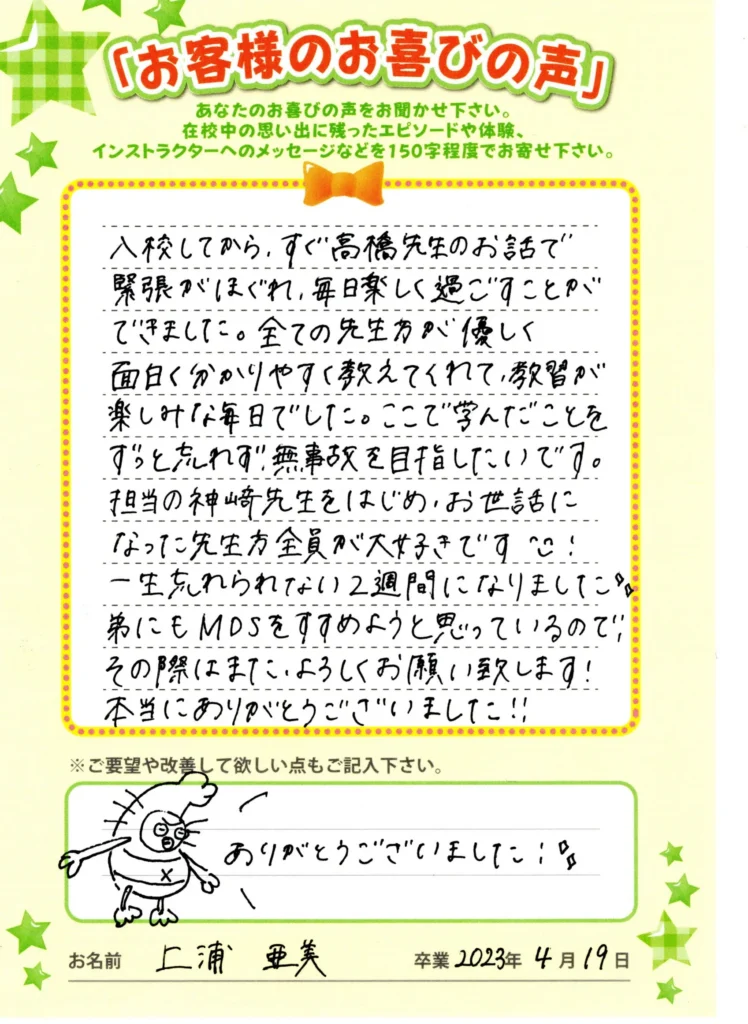 「お客様のお喜びの声」
あなたのお喜びの声をお聞かせ下さい。
在校中の思い出に残ったエピソードや体験、
インストラクターへのメッセージなどを150字程度でお寄せ下さい。
入校してから、すぐ高橋先生のお話で
緊張がほぐれ、毎日楽しく過ごすことが
できました。全ての先生方が優しく
面白く分かりやすく教えてくれて、教習が
楽しみな毎日でした。ここで学んだことを
ずっと忘れず、無事故を目指したいです。
担当の神﨑先生をはじめ、お世話に
なった先生方全員が大好きです!
一生忘れられない2週間になりました
弟にもMDSをすすめようと思っているので、
その際はまた、よろしくお願い致します!
本当にありがとうございました!!
※ご要望や改善して欲しい点もご記入下さい。
ありがとうございました!
お名前 上浦 亜美 卒業 2023年 4月 19日